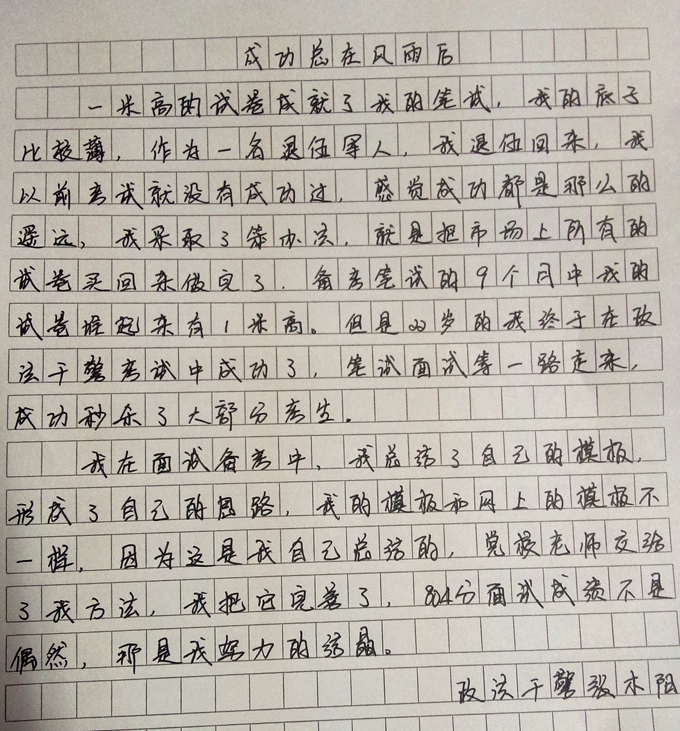 成功总在风雨后
一米高的试卷成就了我的笔试，我的底子
比较薄，作为一名退伍军人，我退伍回来，我
以前考试就没有成功过，感觉成功都是那么的
遥远，我采取了笨办法，就是把市场上所有的
试卷买回来做完了．备考笔试的9个月中我的
试卷堆起来有1米高。但是22岁的我终于在政
法干警考试中成功了，笔试面试等一路走来，
成功秒杀了大部分考生．
我在面试备考中，我总结了自己的模板，
形成了自己的思路，我的模板和网上的模板不
一样，因为这是我自己总结的，党校老师交给
了我方法，我把它完善了，804分面试成绩不是
偶然，那是我努力的结晶。
政法干警张木阳